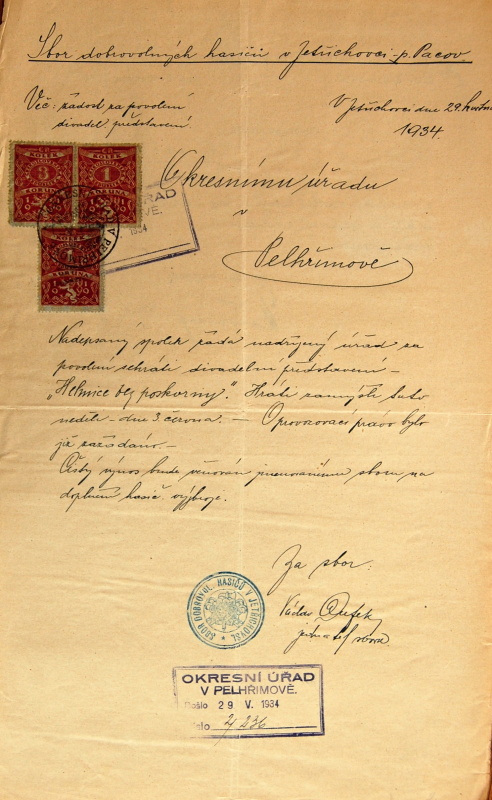 Sbor dobrovolných hasičů v Jetřichovci - p. Pacov.
Věc: žádost za povolení
divadel. představení.
V Jetřichovci dne 29. května
1934.
KOLEK
3
KORUNY
KOLEK
1
KORUNA
KOLEK
KORUNA
ÚŘAD
1934
Okresnímu úřadu
v
Pelhřimově
Nadepsaný spolek žádá nadřízený úřad za
povolení sehráti divadelní představení -
poskvrny". Hráti zamýšlí tuto
neděli - dne 3. června. - Provozovací právo bylo
již zažádáno. -
Čistý výnos bude věnován jmenovanému sboru na
doplnění hasič. výzbroje.
Za sbor:
Václav
jednatel sboru
SBOR DOBROVOL. HASIČŮ V JETŘICHOVCI
OKRESNÍ ÚŘAD
V PELHŘIMOVĚ.
Došlo 29 V. 1934
Číslo